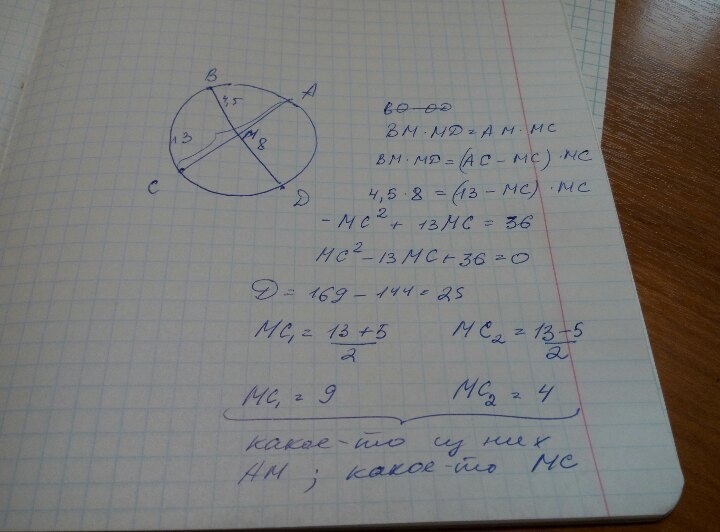 B
4,5
A
13
M
8
C
D
BM · MD = AM · MC
BM · MD = (AC − MC) · MC
4,5 · 8 = (13 − MC) · MC
− MC² + 13MC = 36
MC² − 13MC + 36 = 0
D = 169 − 144 = 25
MC₁ = (13 + 5)/2 MC₂ = (13 − 5)/2
MC₁ = 9 MC₂ = 4
какое-то из них
AM ; какое-то MC